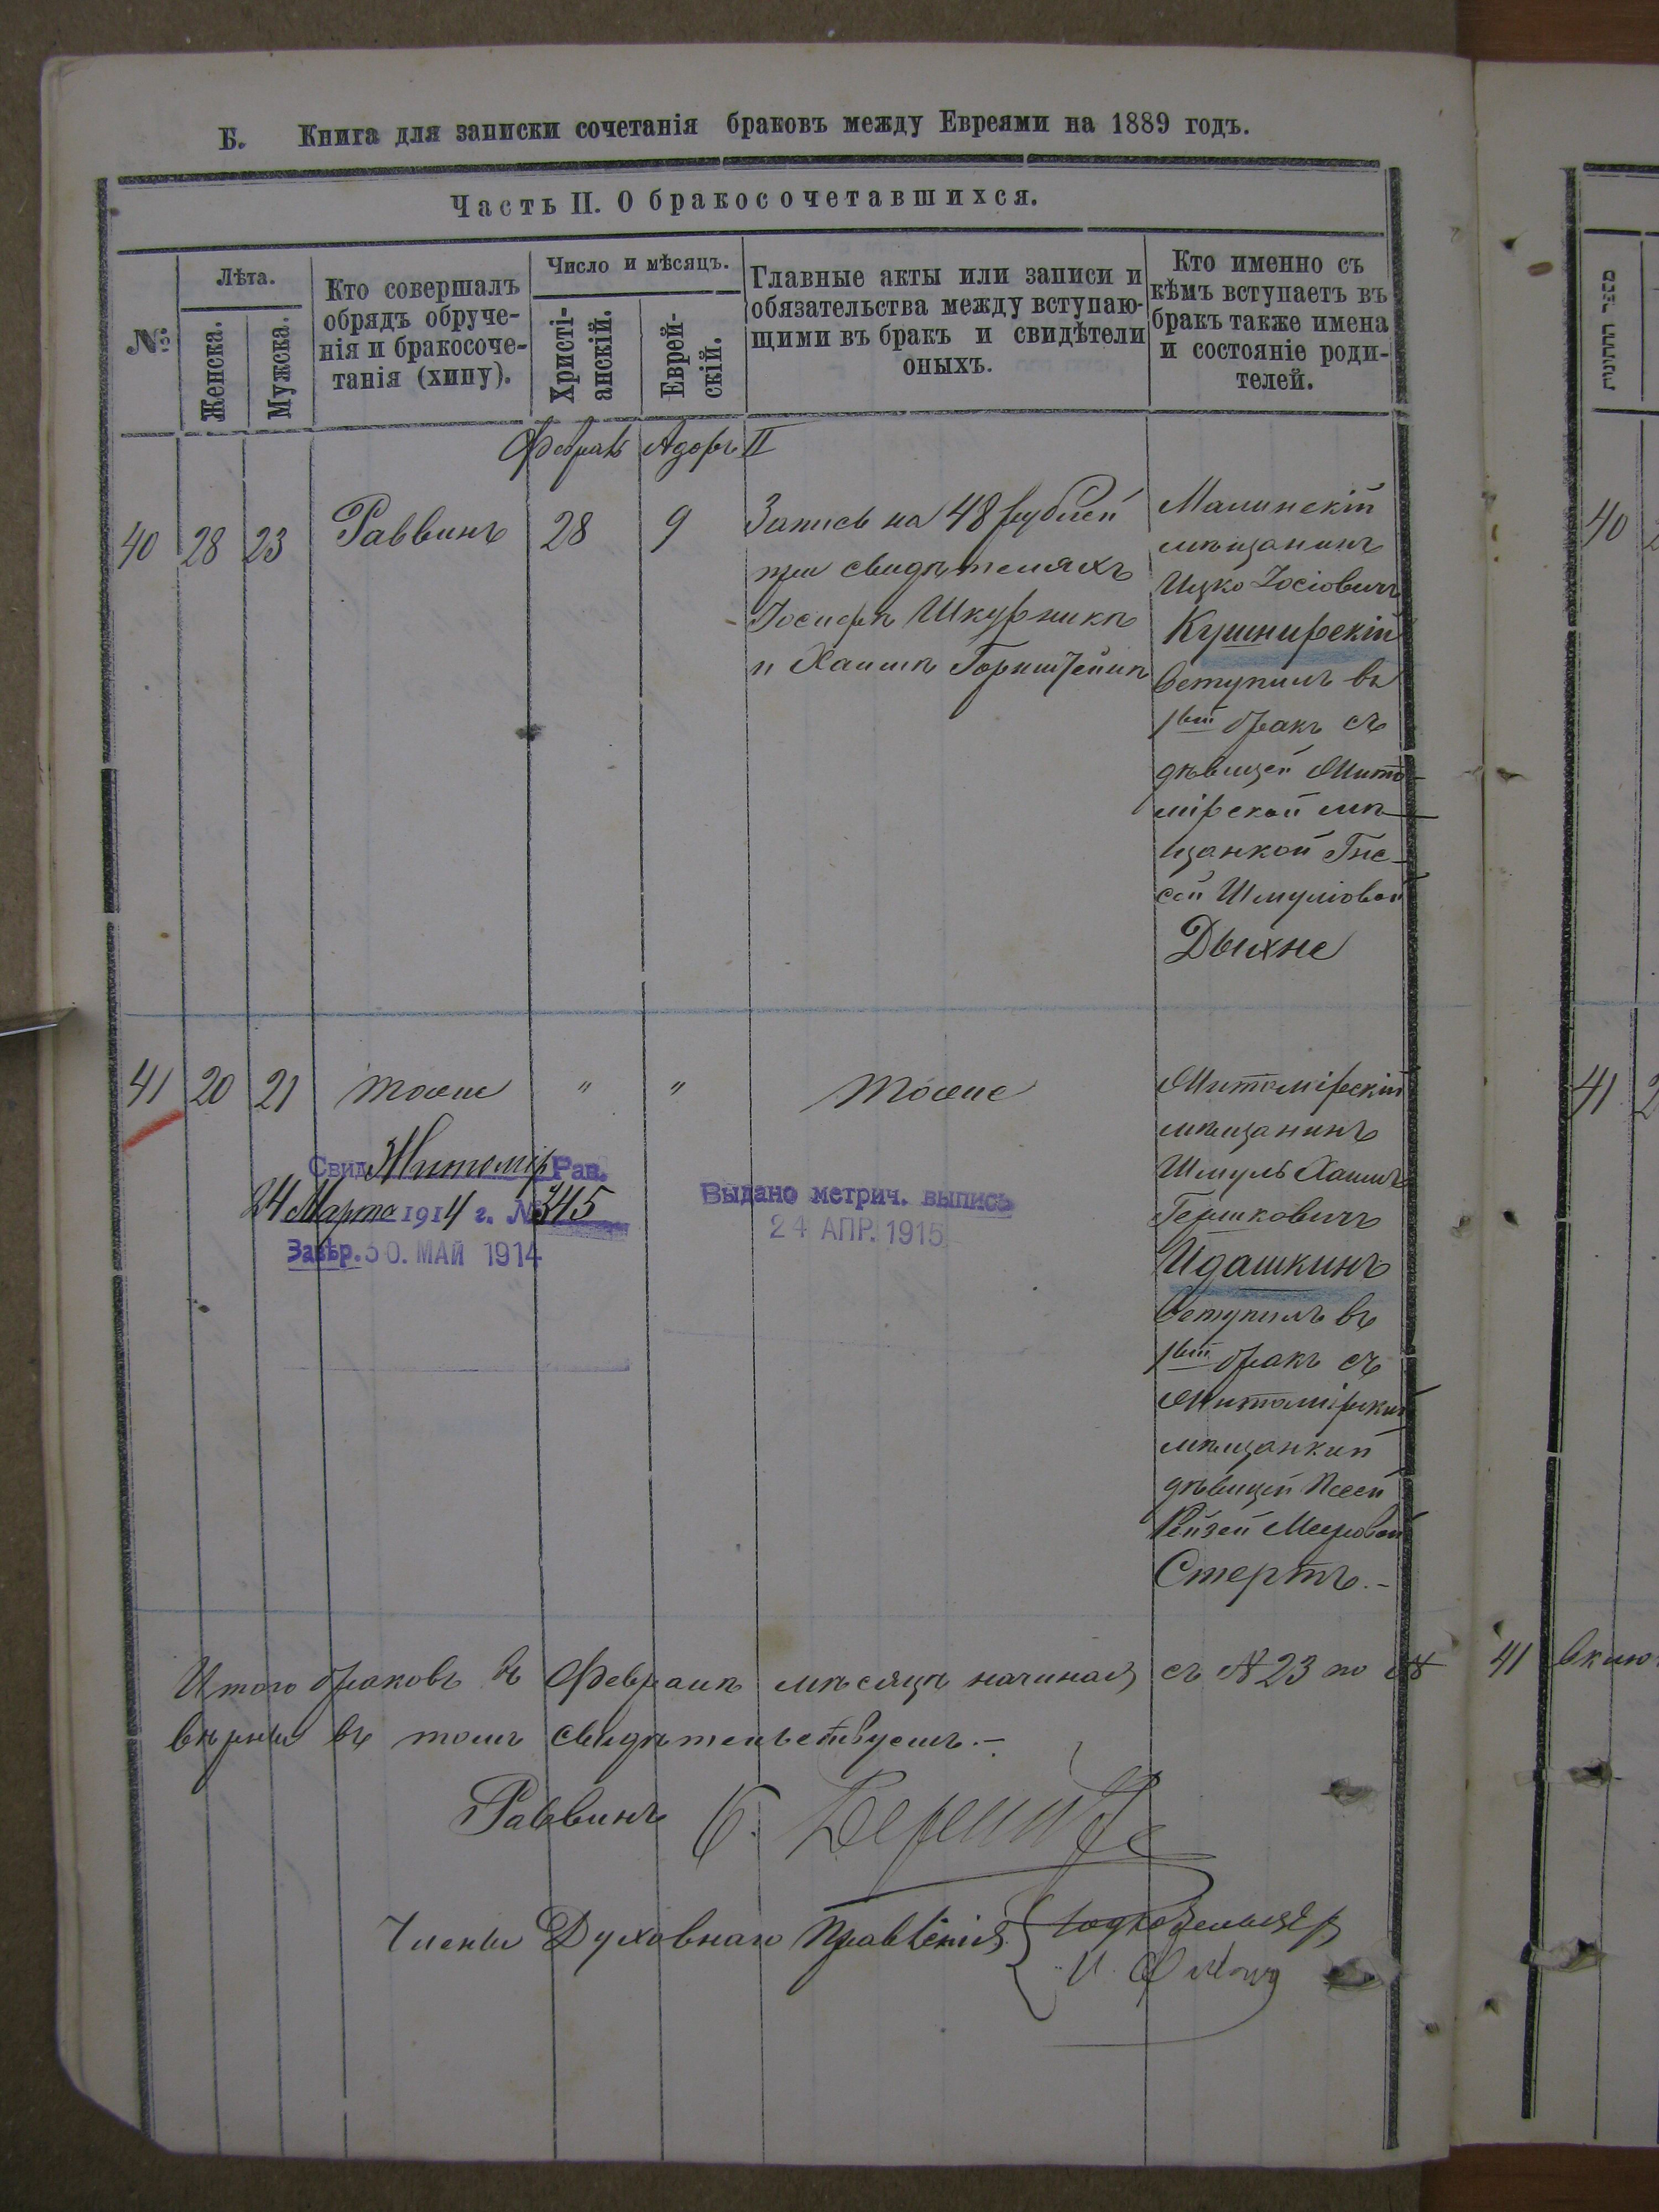 Б. Книга для записки сочетанія браковъ между Евреями на 1889 годъ.
Часть II. О бракосочетавшихся.
№
Лѣта.
Женска.
Мужска.
Кто совершалъ
обрядъ обруче-
нія и бракосоче-
танія (хипу).
Число и мѣсяцъ.
Христі-
анскій.
Еврей-
скій.
Главные акты или записи и
обязательства между вступаю-
щими въ бракъ и свидѣтели
оныхъ.
Кто именно съ
кѣмъ вступаетъ въ
бракъ также имена
и состояніе роди-
телей.
Февраль Адоръ II
40 28 23 Раввинъ 28 9
Запись на 48 рублей
при свидѣтеляхъ
Іосифѣ Шкурникѣ
и Хаимѣ Горнштейнѣ
Малинскій
мѣщанинъ
Ицко Іосіовичъ
Кушнирскій
вступилъ въ
1вый бракъ съ
дѣвицей Жито-
мірской мѣ-
щанкой Гне-
сей Шмуліовой
Дыхне
41 20 21 тоже " " тоже
Житомірскій
мѣщанинъ
Шмуль Хаимъ
Гершковичъ
Идашкинъ
вступилъ въ
1вый бракъ съ
Житомірской
мѣщанкой
дѣвицей Песей
Рейзей Мееровой
Стертъ.-
Свид. Житомір Рав.
24 Марта 1914 г. № 345
Завѣр. 30. МАЙ 1914
Выдано метрич. выпись
24 АПР. 1915
Итого браковъ въ Февралѣ мѣсяцѣ начиная съ № 23 по № 41
вѣрны въ томъ свидѣтельствуемъ.-
Раввинъ
Члены Духовнаго Правленія
40
41